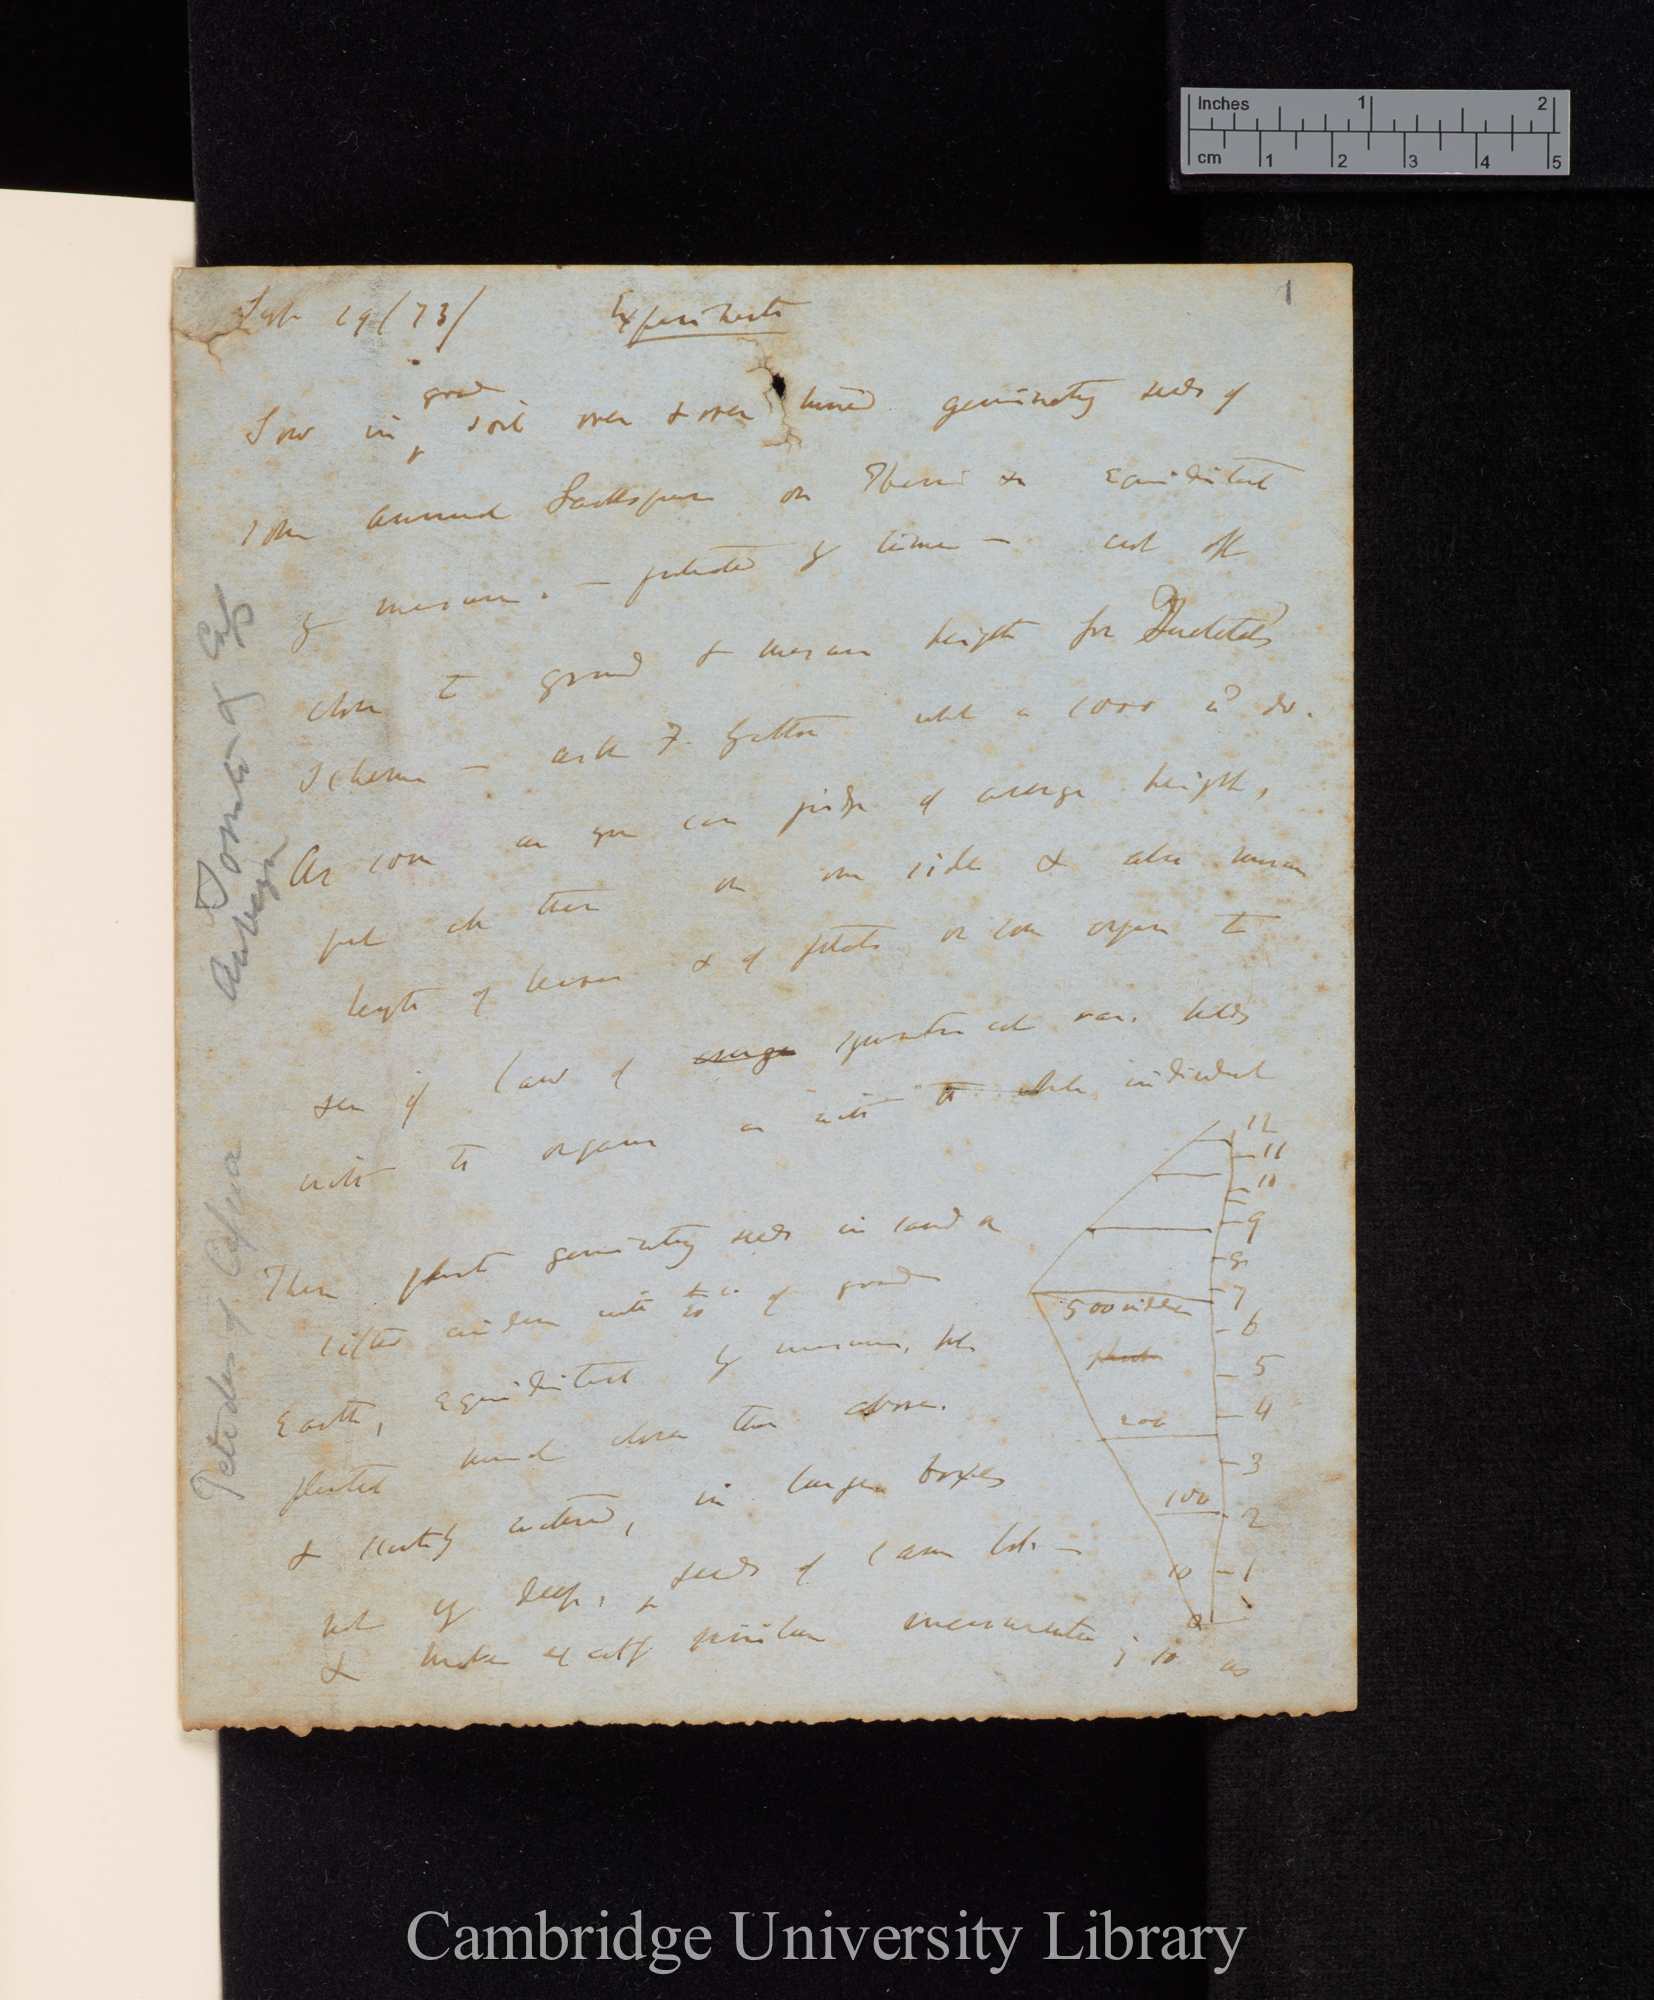 Inches 1 2
cm 1 2 3 4 5
1
Feb 19/73/ Experiments
good
Sow in soil over & over turned germinating seeds of
some annual Larkspur or Iberis & equidistant
by measure. — protected by lime — cut off
close to ground & measure height for Quetelet's
scheme — ask F. Galton whether a 1000 is? do.
As soon as you can judge of average height,
put all these on one side & also measure
length of leaves & of petals or some organ to
see if law of average symmetrical var. holds
with the organs as with the whole individual
Then plant germinating seeds in sand or
sifted cinders with 1/20 of good
Earth, equidistant by measure, but
planted much closer than above.
& scantily watered, in large boxes
not of deep, & seeds of same lot. —
& make exactly similar measurements; so as
12
11
10
9
8
7
500 within
6
5
200
4
3
100
2
10
1
0
Tomato & Cab
Aubergin